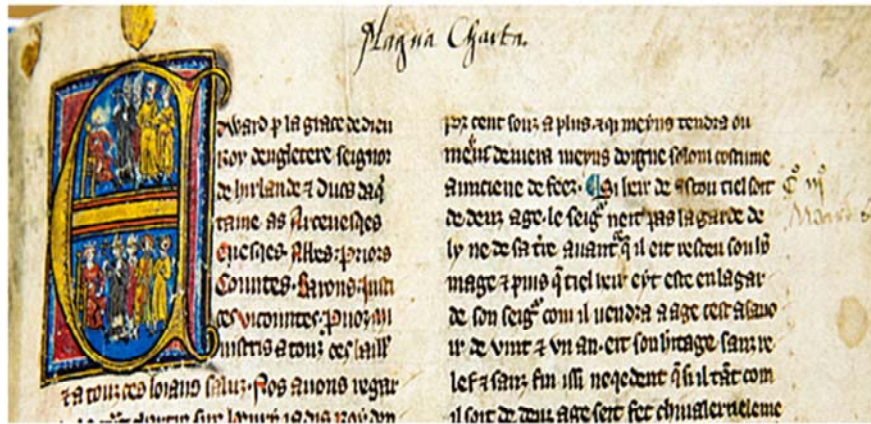 Magna Charta.
Edward p la grace de dieu
roy dengletere seignor
de hirlande ⁊ ducs daq̃
taine as Arceuesqes
Euesqes. Abbes. Priors
Countes. Barons. Justi
ces vicountes. Puoz mi
nistris a touz ces baill
⁊ a touz ces loiaus saluz. Nos auons regar
por cent souz a plus. ⁊ qi meyns tendra ou
meins deuera meyns doigne solom costume
aunciene de feez. Si leir de ascou tiel soit
de deuz age. le seigr neit pas la garde de
ly ne de sa tr̃e auant q̃ il eit resceu son ho
mage ⁊ puis q̃ tiel heir eyt este en la gar
de son seigr com il uendra a age cest a sauo
ir de vint ⁊ vn an. eit son h'itage sanz re
lef ⁊ sanz fin issi neqedent q̃ si il tãt com
il soit de deuz age seit fet chiualer neleme